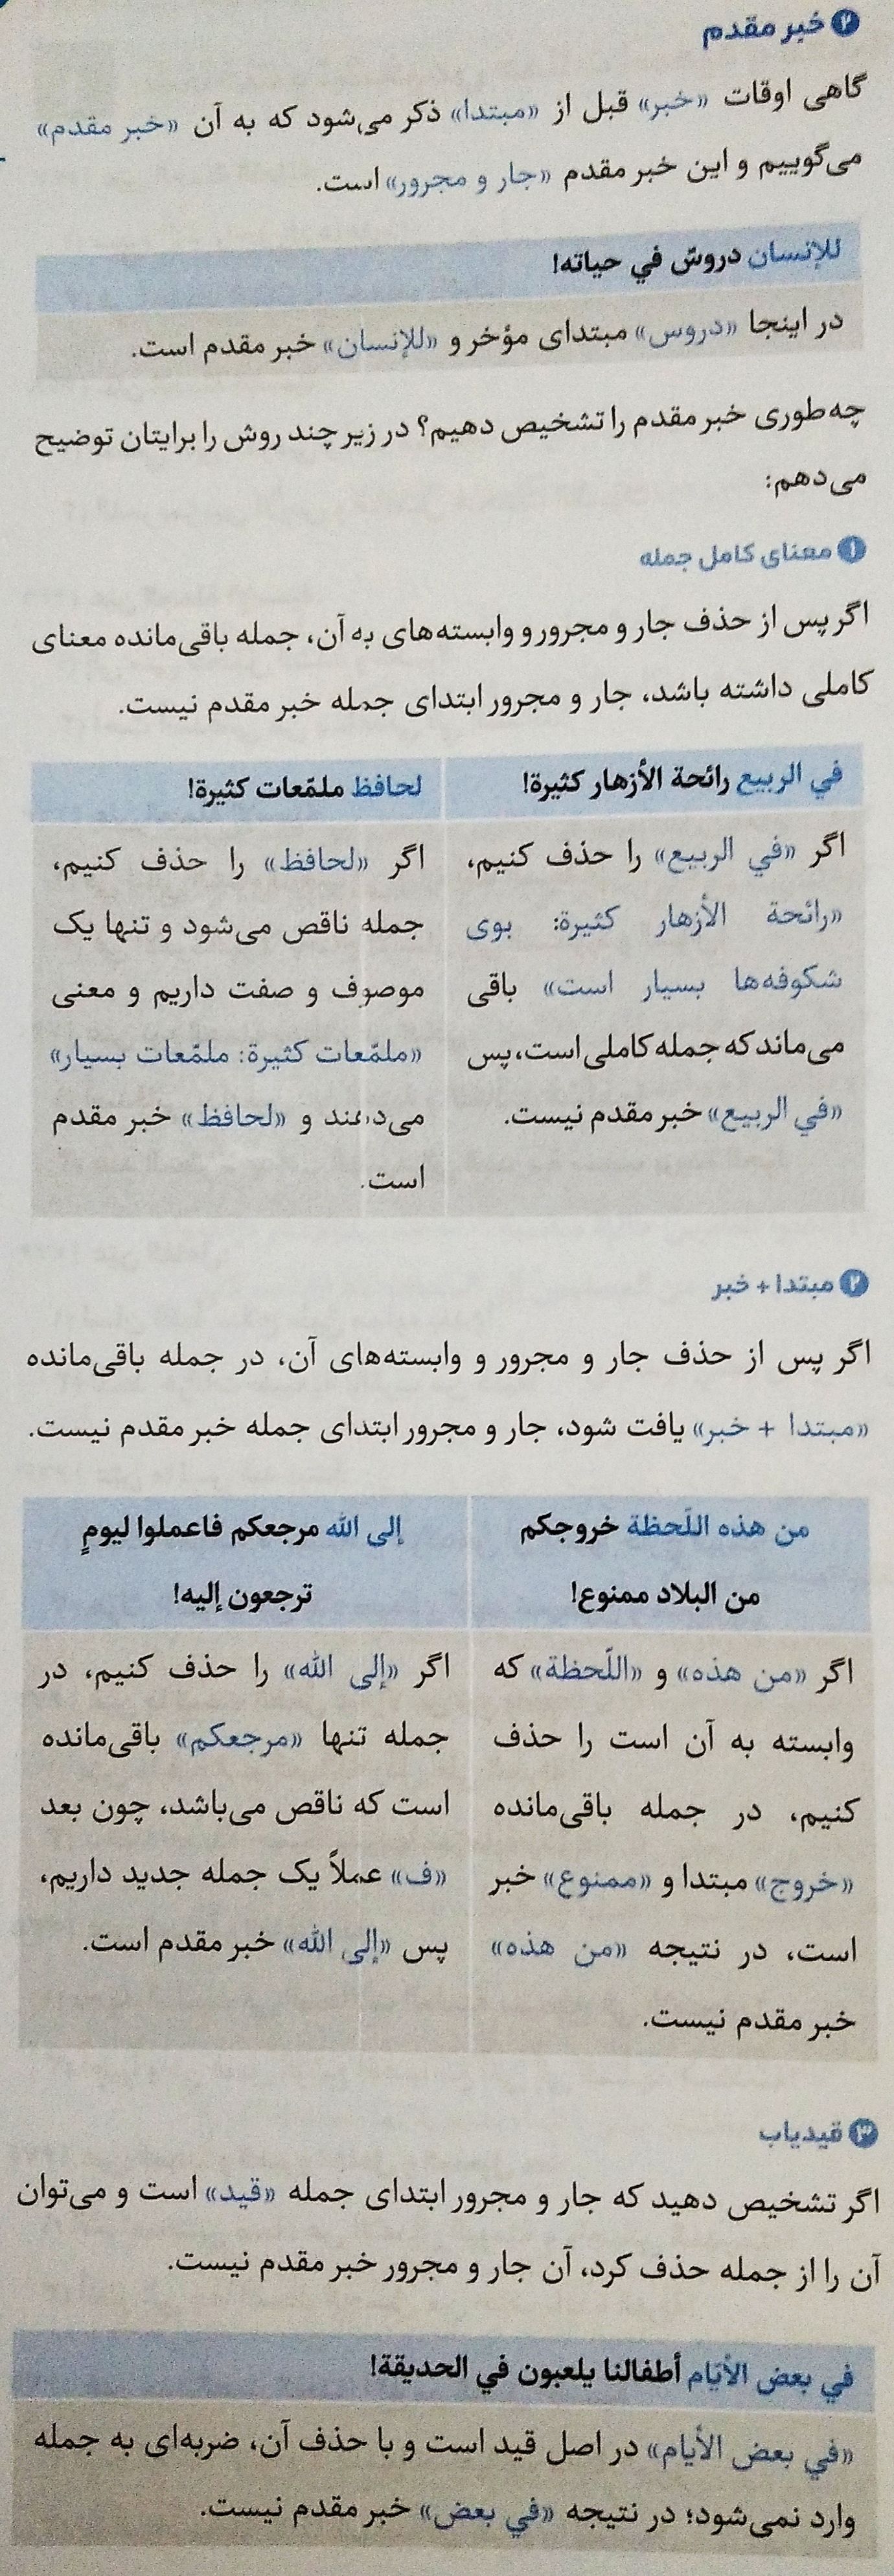 ۲ خبر مقدم
گاهی اوقات «خبر» قبل از «مبتدا» ذکر می‌شود که به آن «خبر مقدم»
می‌گوییم و این خبر مقدم «جار و مجرور» است.
للإنسان دروسٌ في حیاته!
در اینجا «دروس» مبتدای مؤخر و «للإنسان» خبر مقدم است.
چه‌طوری خبر مقدم را تشخیص دهیم؟ در زیر چند روش را برایتان توضیح
می‌دهم:
۱ معنای کامل جمله
اگر پس از حذف جار و مجرور و وابسته‌های به آن، جمله باقی‌مانده معنای
کاملی داشته باشد، جار و مجرور ابتدای جمله خبر مقدم نیست.
في الربیع رائحة الأزهار کثیرة!
اگر «في الربیع» را حذف کنیم،
«رائحة الأزهار کثیرة: بوی
شکوفه‌ها بسیار است» باقی
می‌ماند که جمله کاملی است، پس
«في الربیع» خبر مقدم نیست.
لحافظ ملمّعات کثیرة!
اگر «لحافظ» را حذف کنیم،
جمله ناقص می‌شود و تنها یک
موصوف و صفت داریم و معنی
«ملمّعات کثیرة: ملمّعات بسیار»
می‌دهند و «لحافظ» خبر مقدم
است.
۲ مبتدا + خبر
اگر پس از حذف جار و مجرور و وابسته‌های آن، در جمله باقی‌مانده
«مبتدا + خبر» یافت شود، جار و مجرور ابتدای جمله خبر مقدم نیست.
من هذه اللّحظة خروجکم
من البلاد ممنوع!
اگر «من هذه» و «اللّحظة» که
وابسته به آن است را حذف
کنیم، در جمله باقی‌مانده
«خروج» مبتدا و «ممنوع» خبر
است، در نتیجه «من هذه»
خبر مقدم نیست.
إلی الله مرجعکم فاعملوا لیومٍ
ترجعون إلیه!
اگر «إلی الله» را حذف کنیم، در
جمله تنها «مرجعکم» باقی‌مانده
است که ناقص می‌باشد، چون بعد
«ف» عملاً یک جمله جدید داریم،
پس «إلی الله» خبر مقدم است.
۳ قیدیاب
اگر تشخیص دهید که جار و مجرور ابتدای جمله «قید» است و می‌توان
آن را از جمله حذف کرد، آن جار و مجرور خبر مقدم نیست.
في بعض الأیّام أطفالنا یلعبون في الحدیقة!
«في بعض الأیام» در اصل قید است و با حذف آن، ضربه‌ای به جمله
وارد نمی‌شود؛ در نتیجه «في بعض» خبر مقدم نیست.